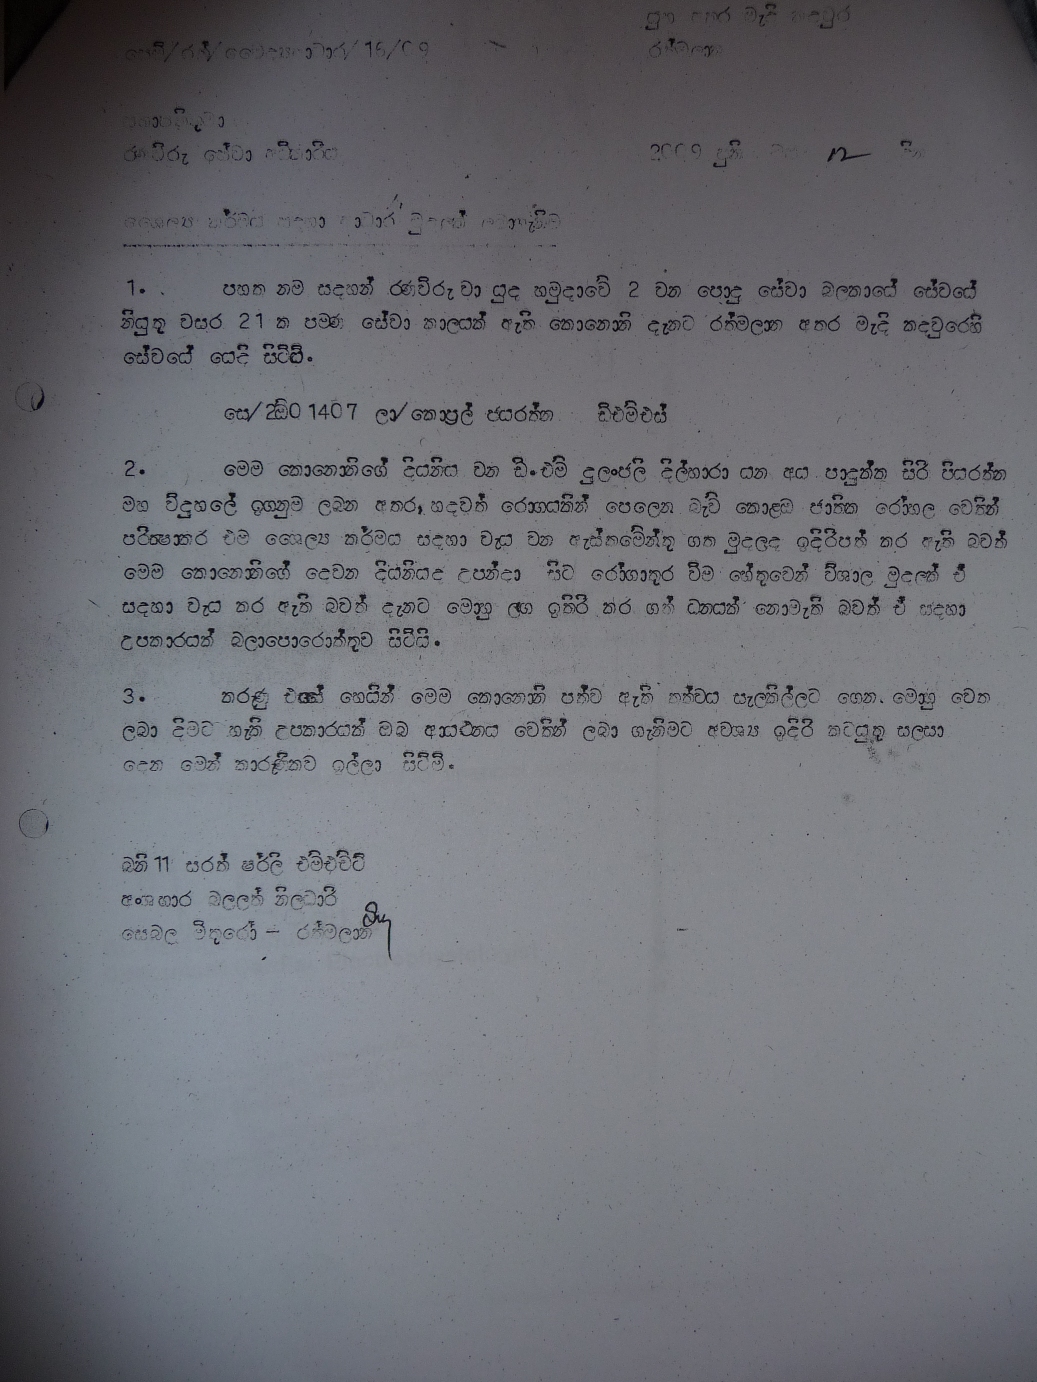 අතර මැදි කඳවුර
රත්මලාන
15/09
රණවිරු සේවා අධිකාරිය
2009 ජුනි 12 දින
ශෛල්‍ය කර්මය සඳහා ආධාර මුදලක් ලබාගැනීම
1. . පහත නම සඳහන් රණවිරු වා යුද හමුදාවේ 2 වන පොදු සේවා බලකායේ සේවයේ
නියුතු වසර 21 ක පමණ සේවා කාලයක් ඇති කොනොනි දැනට රත්මලාන අතර මැදි කඳවුරෙහි
සේවයේ යෙදී සිටියි.
සෙ/ 01407 ලා/කොප්‍රල් ජයරත්න ඩීඑම්එස්
2. මෙම කොනොනිගේ දියනිය වන ඩී.එම් දුලංජලි දිල්හාරා යන අය පාදුක්ක සිරි පියරත්න
මහ විදුහලේ ඉගනුම ලබන අතර, හදවත් රෝගයකින් පෙලෙන බැවි කොළඹ ජාතික රෝහල වෙතින්
පරීක්ෂාකර එම ශෛල්‍ය කර්මය සඳහා වැය වන ඇස්තමේන්තු ගත මුදලද ඉදිරිපත් කර ඇති බවත්
මෙම කොනොනිගේ දෙවන දියනියද උපන්දා සිට රෝගාතුර වීම හේතුවෙන් විශාල මුදලක් ඒ
සඳහා වැය කර ඇති බවත් දැනට මොහු ලග ඉතිරි කර ගත් ධනයක් නොමැති බවත් ඒ සඳහා
උපකාරයක් බලාපොරොත්තුව සිටියි.
3. කරුණු එසේ හෙයින් මෙම කොනොනි පත්ව ඇති තත්වය සැලකිල්ලට ගෙන. මොහු වෙත
ලබා දීමට හැකි උපකාරයක් ඔබ ආයථනය වෙතින් ලබා ගැනීමට අවශ්‍ය ඉදිරි කටයුතු සලසා
දෙන මෙන් කාරුණිකව ඉල්ලා සිටිමි.
බනි 11 සරත් ෂර්ලි එම්එච්ටී
අංශභාර බලලත් නිලධාරී
සෙබල මිතුරෝ – රත්මලාන